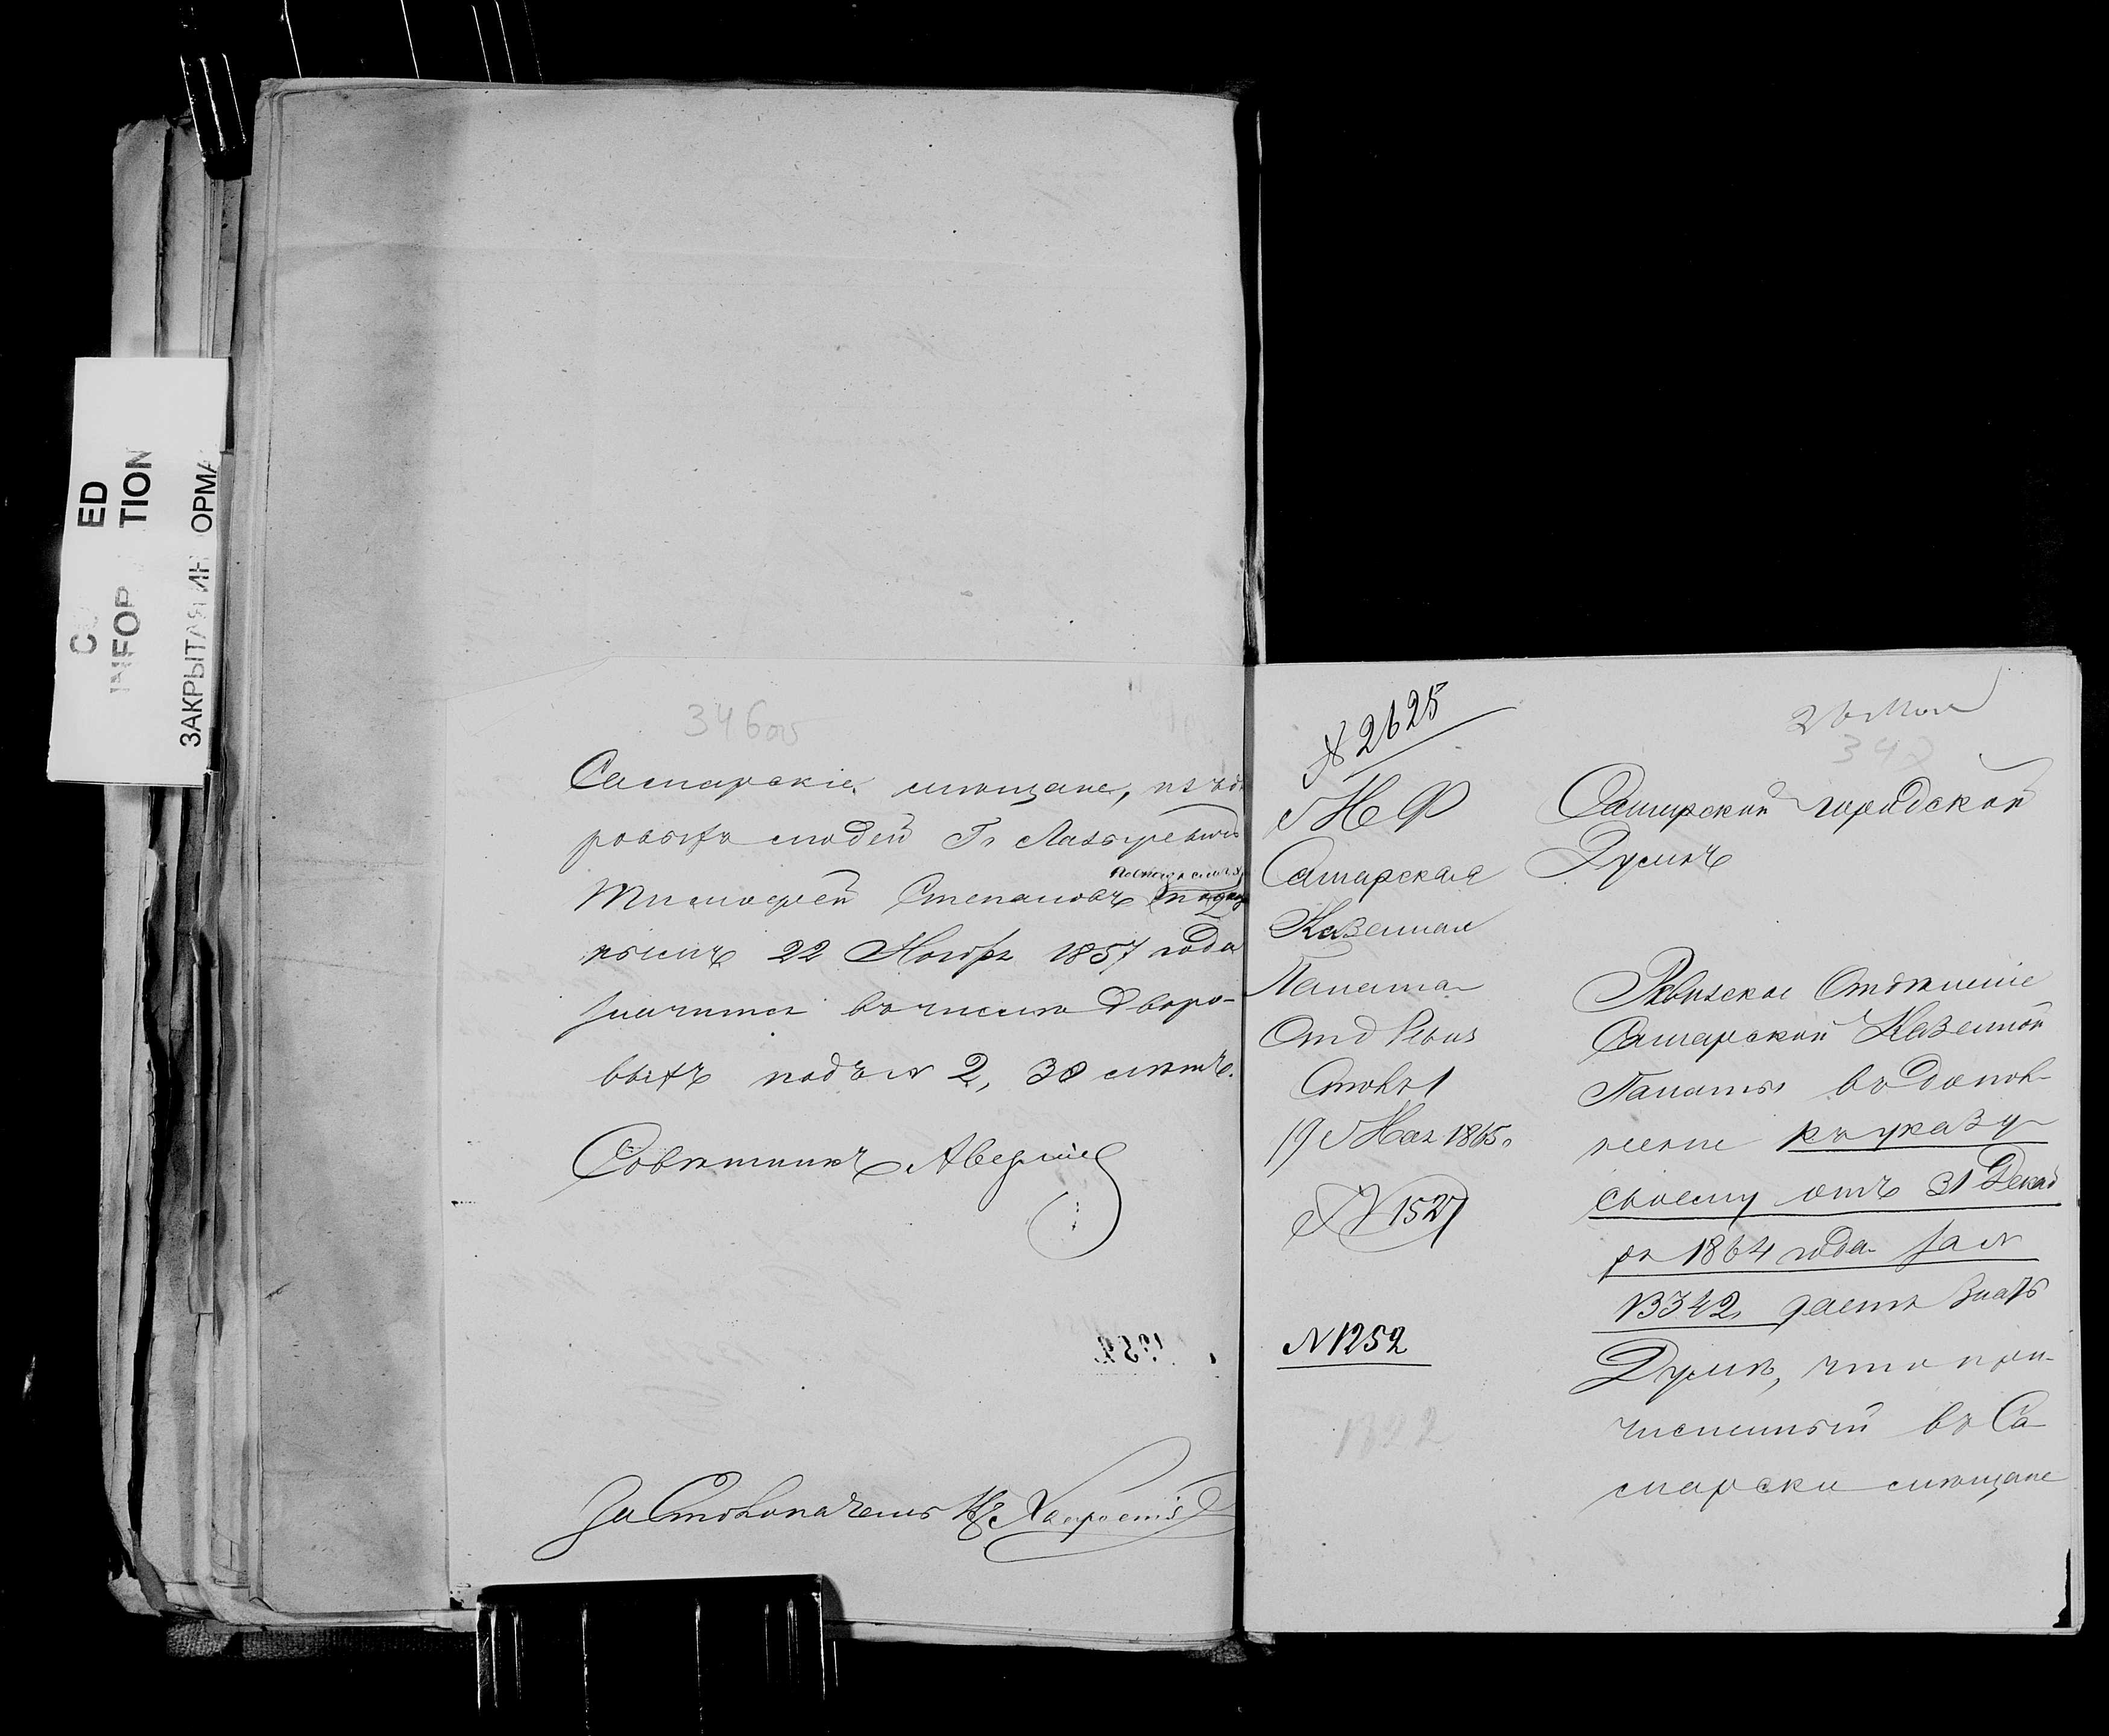 ED
TION
INFOR
ЗАКРЫТАЯ ИН ОРМА
346об
Самарскіе мѣщане, изъ дво
ровыхъ людей Г. Лазаревыхъ
Тимофей Степановъ
22 Ноября 1857 года
значится въ числѣ дворо-
выхъ подъ № 2, 30 лѣтъ.
Совѣтникъ
За Столоначальн
№ 2625
М Ф
Самарская
Казенная
Палата
Отд Ревиз
Столъ 1
19 Мая 1865
№ 1527
N 1252
1322
26 Мая
347
Самарской городской
Думѣ
Ревизское Отдѣленіе
Самарской Казенной
Палаты въ допол-
неніе къ указу
своему отъ 31 Декаб
ря 1864 года за №
13342, даетъ знать
Думѣ, что при-
численный въ Са-
марски мѣщане